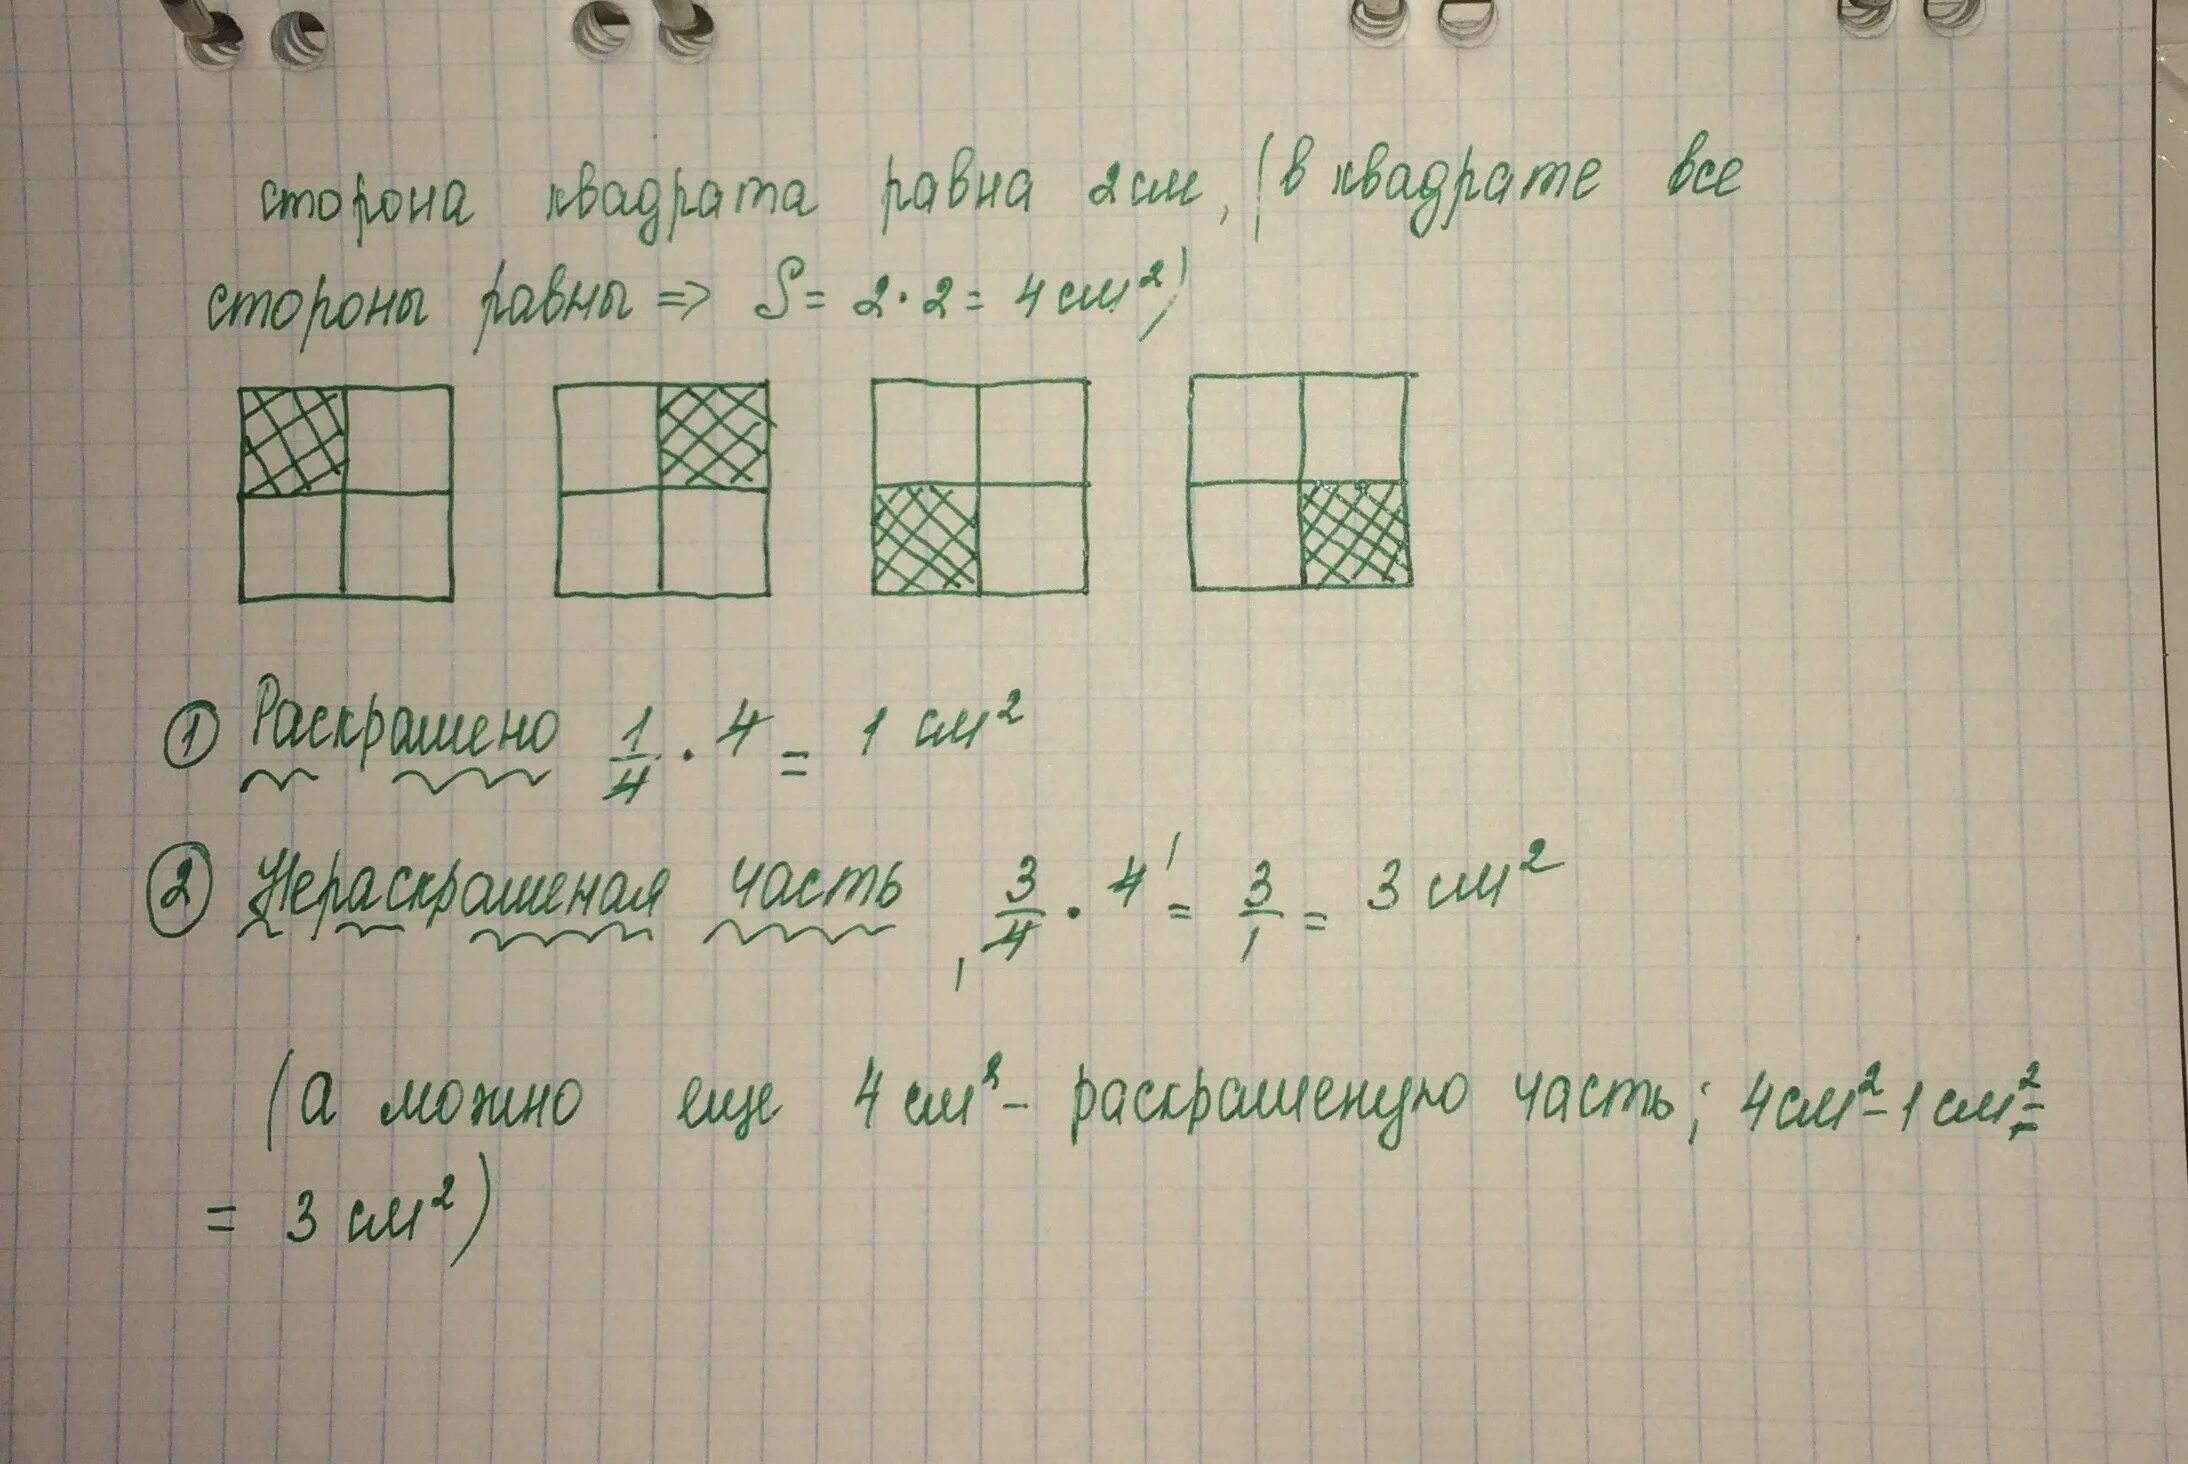 сторона квадрата равна 2см, (в квадрате все
стороны равны => S = 2 · 2 = 4 см²)
① Раскрашено 1/4 · 4 = 1 см²
② Нераскрашеная часть 3/4 · 4 = 3/1 = 3 см²
(а можно еще 4 см² - раскрашеную часть; 4см² - 1см² =
= 3 см²)